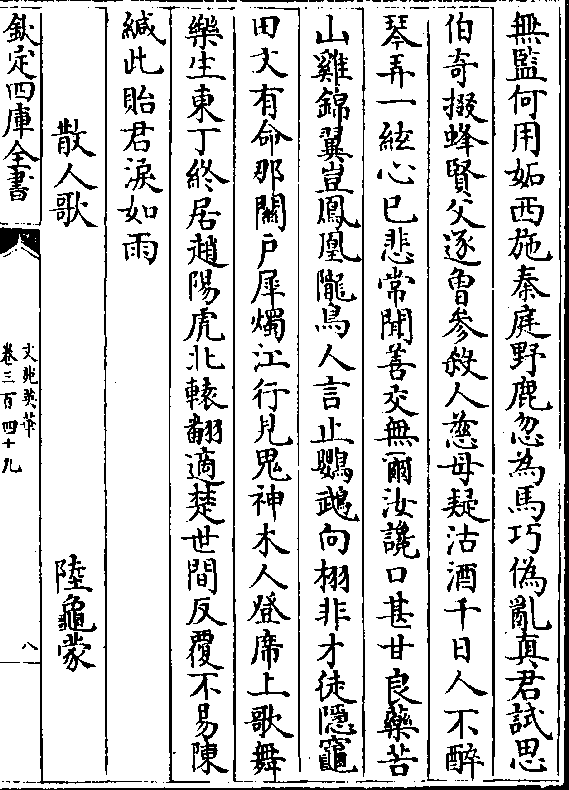 無監何用妬西施秦庭野鹿忽為馬巧偽亂真君試思
伯奇掇蜂賢父逐曾參殺人慈母疑沽酒千日人不醉
琴弄一絃心已悲常聞善交無爾汝讒口甚甘良藥苦
山雞錦翼豈鳳凰隴鳥人言止鸚鵡向栩非才徒隱竈
田文有命那關户犀燭江行見鬼神木人登席上歌舞
樂生東丁終居趙陽虎北轅翻適楚世間反覆不易陳
緘此貽君淚如雨
散人歌 陸龜蒙
欽定四庫全書
文苑英華
卷三百四十九
八